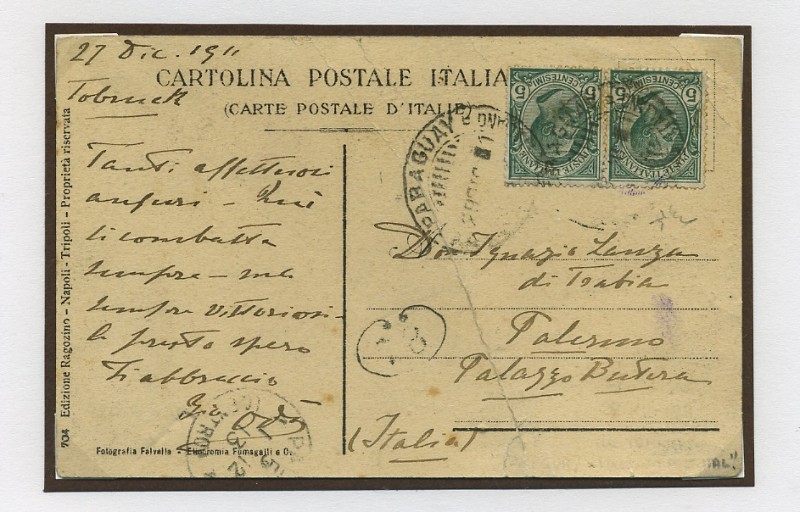 27 Dic. 1911
Tobruck
CARTOLINA POSTALE ITALIA
(CARTE POSTALE D'ITALIE)
Tanti affettuosi
auguri - Qui
si combatte
sempre - ma
sempre vittoriosi -
A presto spero
Ti abbraccio
704 Edizione Ragozino - Napoli - Tripoli - Proprietà riservata
Fotografia Falvella - Eliocromia Fumagalli e C.
POSTE ITALIANE
CENTESIMI
5
5
POSTE ITALIANE
CENTESIMI
5
5
PARAGUAY
Don Ignazio Lanza
di Trabia
Palermo
Palazzo Butera
(Italia)
CENTRO